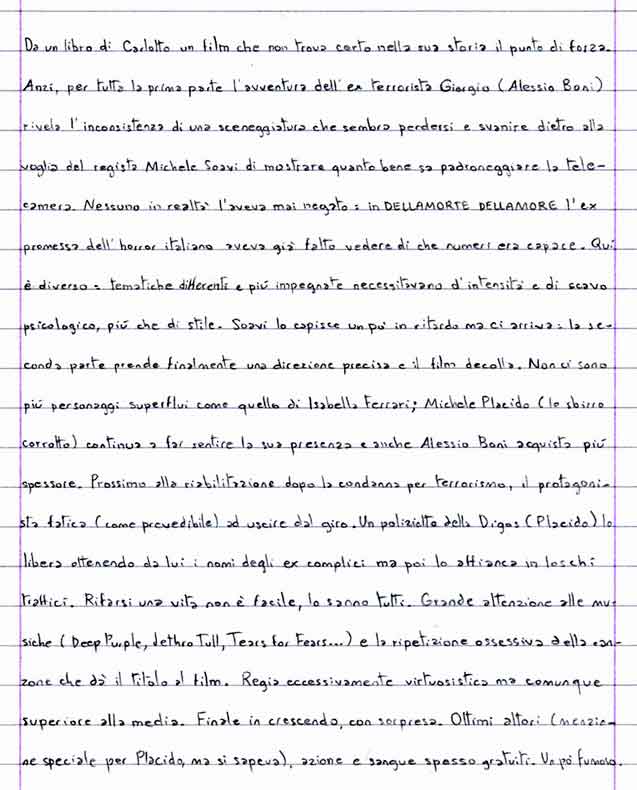 Da un libro di Carlotto un film che non trova certo nella sua storia il punto di forza.
Anzi, per tutta la prima parte l'avventura dell'ex terrorista Giorgio (Alessio Boni)
rivela l'inconsistenza di una sceneggiatura che sembra perdersi e svanire dietro alla
voglia del regista Michele Soavi di mostrare quanto bene sa padroneggiare la tele-
camera. Nessuno in realtà l'aveva mai negato: in DELLAMORTE DELLAMORE l'ex
promessa dell'horror italiano aveva già fatto vedere di che numeri era capace. Qui
è diverso: tematiche differenti e più impegnate necessitavano d'intensità e di scavo
psicologico, più che di stile. Soavi lo capisce un po' in ritardo ma ci arriva: la se-
conda parte prende finalmente una direzione precisa e il film decolla. Non ci sono
più personaggi superflui come quello di Isabella Ferrari; Michele Placido (lo sbirro
corrotto) continua a far sentire la sua presenza e anche Alessio Boni acquista più
spessore. Prossimo alla riabilitazione dopo la condanna per terrorismo, il protagoni-
sta fatica (come prevedibile) ad uscire dal giro. Un poliziotto della Digos (Placido) lo
libera ottenendo da lui i nomi degli ex complici ma poi lo affianca in loschi
traffici. Rifarsi una vita non è facile, lo sanno tutti. Grande attenzione alle mu-
siche (Deep Purple, Jethro Tull, Tears for Fears...) e la ripetizione ossessiva della can-
zone che dà il titolo al film. Regia eccessivamente virtuosistica ma comunque
superiore alla media. Finale in crescendo, con sorpresa. Ottimi attori (menzio-
ne speciale per Placido, ma si sapeva), azione e sangue spesso gratuiti. Un po' fumoso.